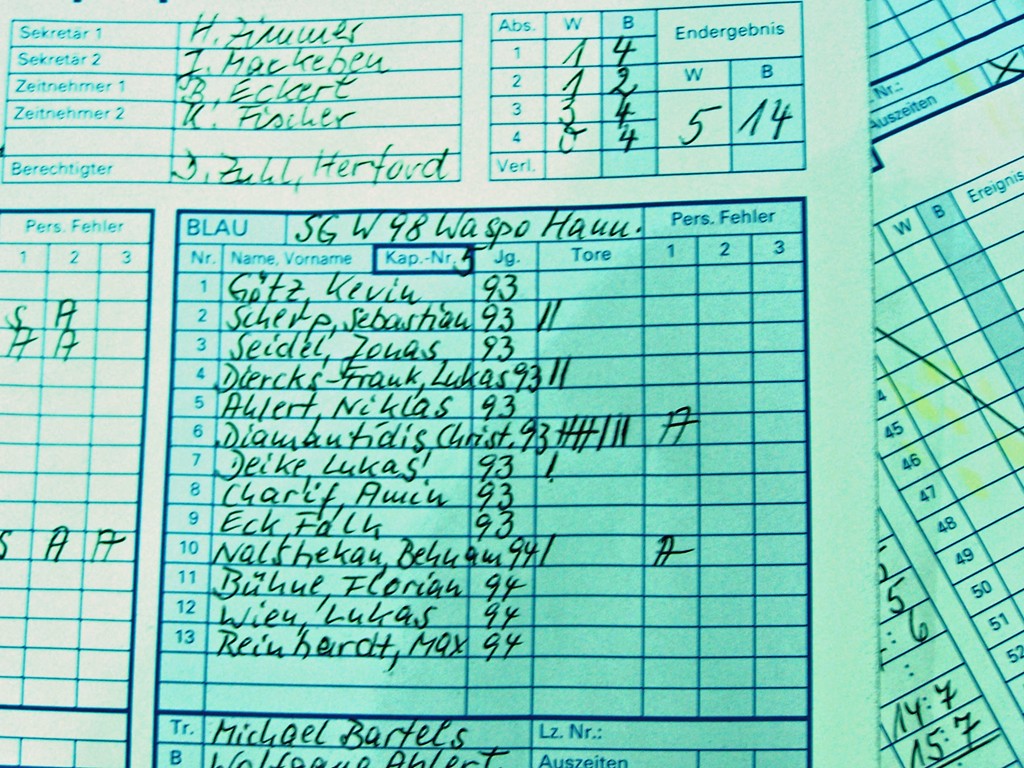 Sekretär 1 H. Zimmer
Sekretär 2 I. Mackeben
Zeitnehmer 1 B. Eckert
Zeitnehmer 2 K. Fischer
Berechtigter D. Zuhl, Herford
Abs. W B Endergebnis
1 1 4
2 1 2 W B
3 3 4 5 14
4 0 4
Verl.
Pers. Fehler
1 2 3
S A
A A
S A A
BLAU SG W 98 Waspo Hann. Pers. Fehler
Nr. Name, Vorname Kap.-Nr. 5 Jg. Tore 1 2 3
1 Götz, Kevin 93
2 Scherp, Sebastian 93 ||
3 Seidel, Jonas 93
4 Diercks-Frank, Lukas 93 ||
5 Ahlert, Niklas 93
6 Diamantidis, Christ. 93 A
7 Deike, Lukas 93 |
8 Charif, Amin 93
9 Eck Falk 93
10 Nalshekan, Behnam 94 | A
11 Bühne, Florian 94
12 Wien, Lukas 94
13 Reinhardt, Max 94
Tr. Michael Bartels Lz. Nr.:
B Wolfgang Ahlert Auszeiten
Nr.: X
Auszeiten
W B Ereignis
45
46
47
48
49
50
51
52
5
6
14:7
15:7